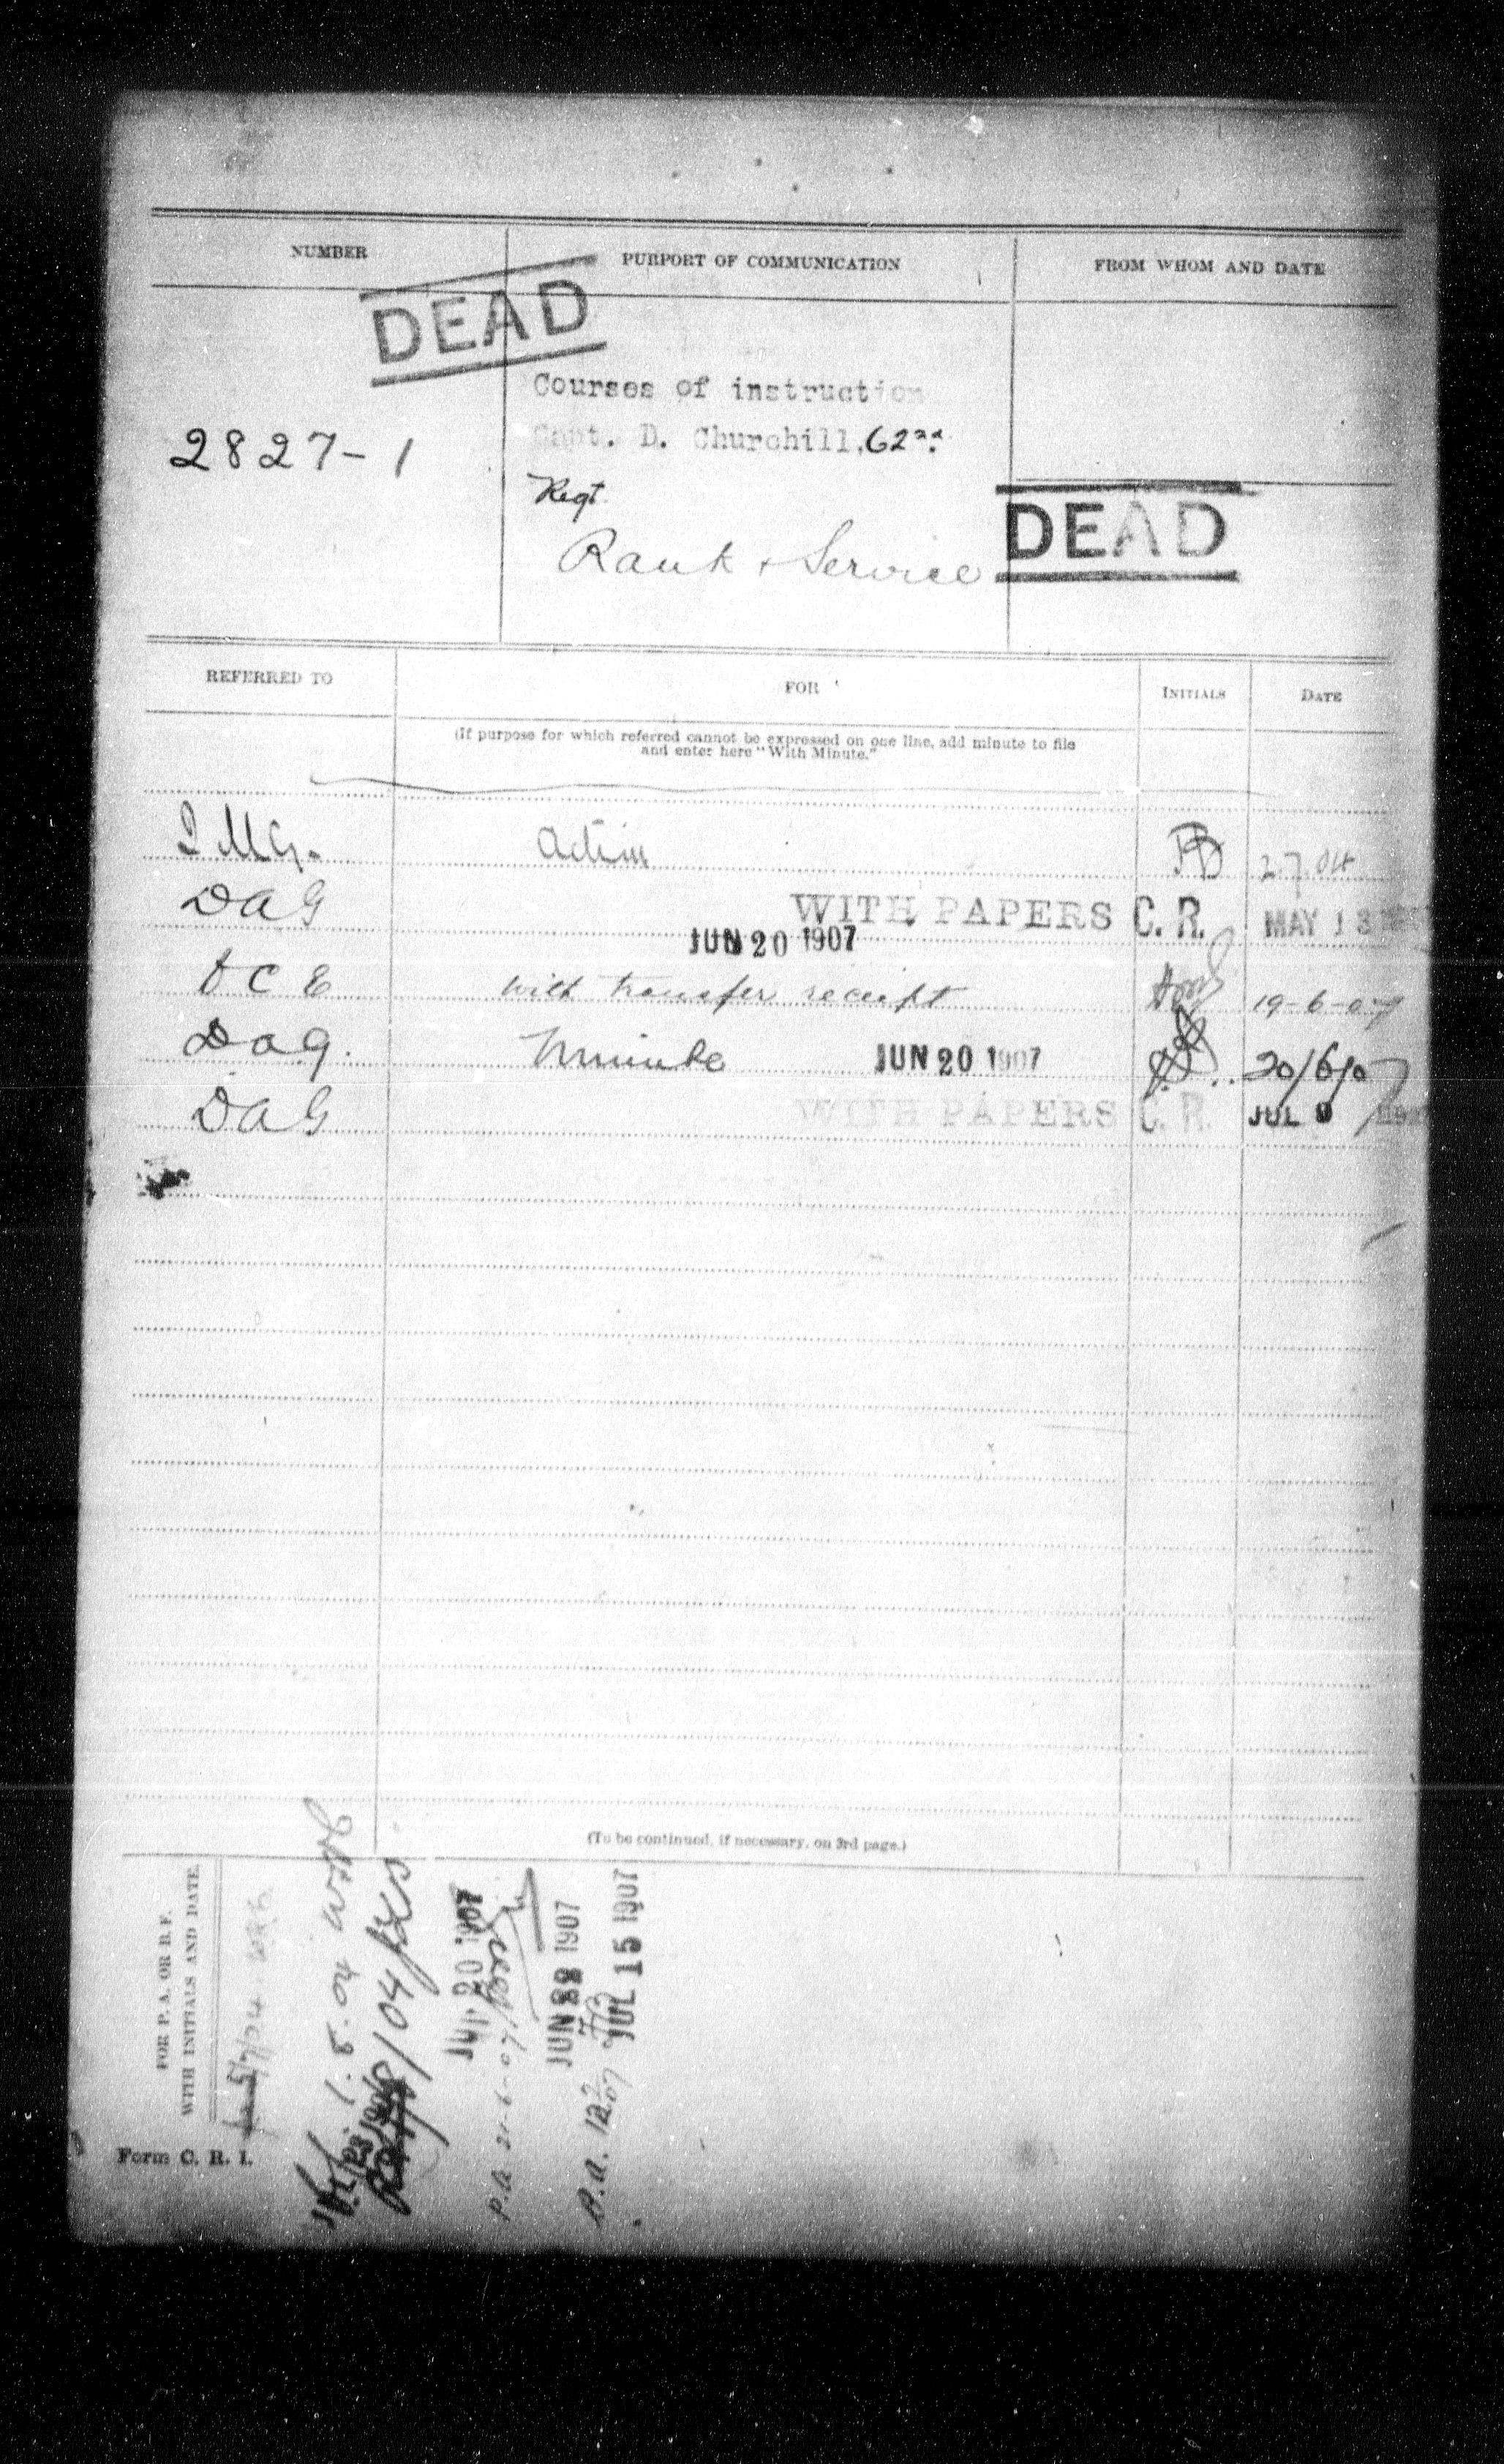 NUMBER
PURPORT OF COMMUNICATION
FROM WHOM AND DATE
DEAD
Courses of instruction
Capt. D. Churchill, 62nd
2827-1
Regt
DEAD
Rank & Service
REFERRED TO
FOR
INITIALS
DATE
(If purpose for which referred cannot be expressed on one line, add minute to file
and enter here "With Minute.")
Q M G. Action
DAG WITH PAPERS C. R. MAY 13
JUN 20 1907
with transfer receipt 19-6-07
DAG. Minute JUN 20 1907 20/6/07
DAG WITH PAPERS C. R. JUL 9
(To be continued, if necessary, on 3rd page.)
FOR P. A. OR B. F.
WITH INITIALS AND DATE
20 1907
P.A. 21-6-07
JUN 1907
P.A.
JUL 15 1907
Form C. R. 1.